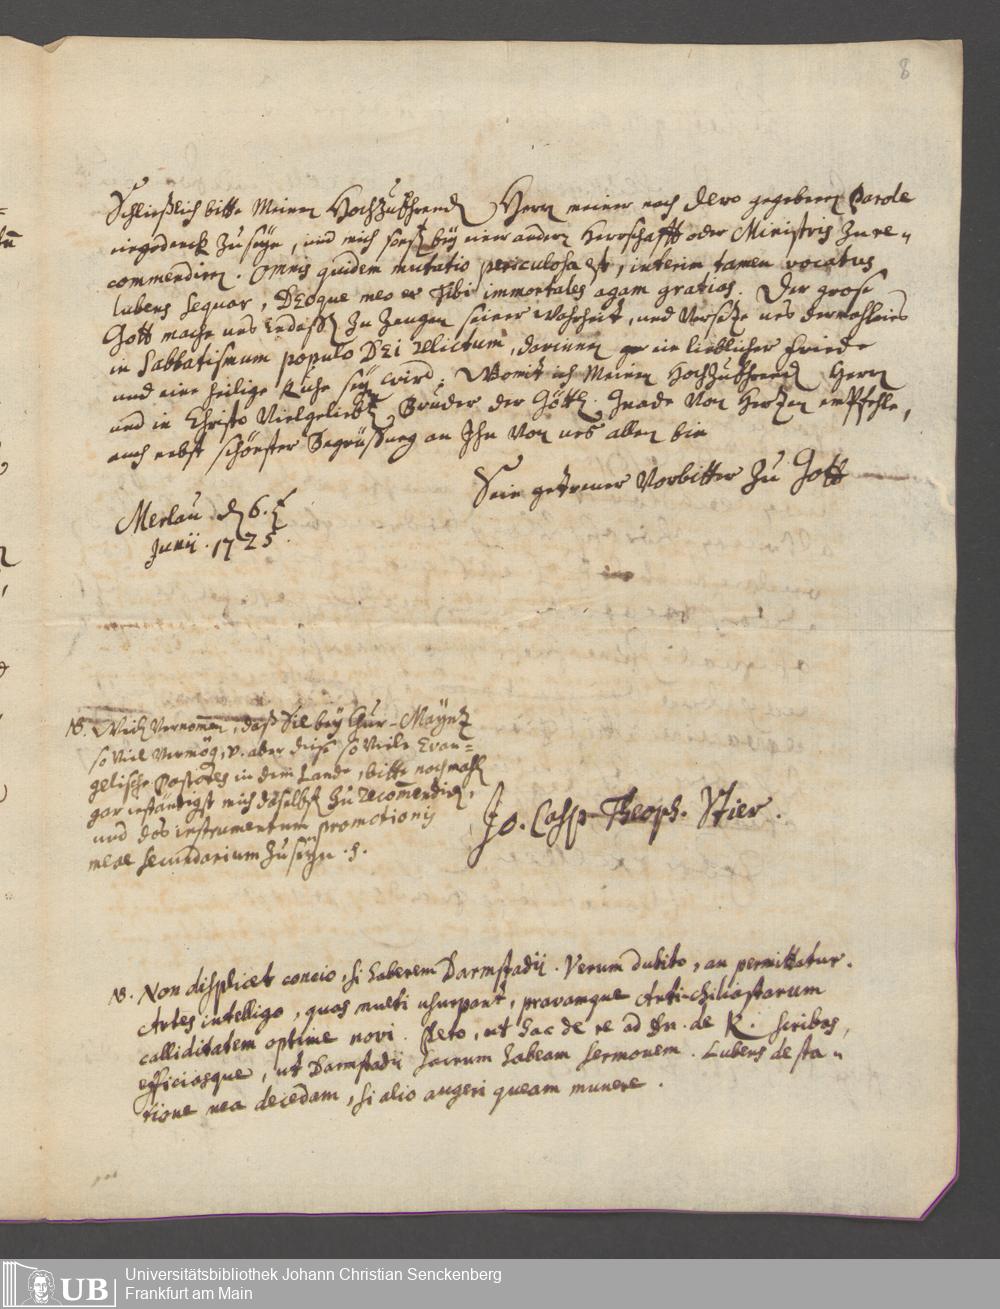 8
Schließlich bitte Meinen HochzuEhrend Herrn meiner nach dero gegebenen Parole
eingedenck zu seyn, und mich sonst bey einer andern Herrschafft oder Ministris zu re-
commendiren. Omnis quidem mutatio periculosa est, interim tamen vocatus
lubens sequar, DEoque meo et Tibi immortales agam gratias. Der grose
Gott mache uns zu Zeugen seiner Wahrheit, und Versetze uns dermahleins
in Sabbatismum populo DEI relictum, darinnen ein lieblicher Friede
und eine heilige Ruhe seyn wird. Womit ich Meinen HochzuEhrend Herrn
und in Christo Vielgeliebt Bruder der Göttl. Gnade Von Hertzen empfehle,
auch nebst schönster Begrüßung an Ihn Von uns allen bin
Sein getreuer Vorbitter zu Gott
Merlau d 6.
Junij. 1725.
NB. Weil Vernommen, daß Sie bey Chur-Mayntz
so Viel Vermög, v. aber diese so Viele Evan-
gelische Pastores in dem Lande, bitte nochmahl
gar inständigst mich daselbst zu recommendiren,
und das instrumentum promotionis
meae secundarium zu seyn. S.
Jo. Casp. Theoph. Stier.
NB. Non displicet concio, si haberem Darmstadii. Verum dubito, an permittatur.
Artes intelligo, quas multi usurpant, pravamque Anti-chiliastarum
calliditatem optime novi. Peto, ut hac de re ad Dn. de K. scribas,
efficiasque, ut Darmstadii sacrum habeam sermonem. Lubens de sta-
tione mea decedam, si alio augeri queam munere.
UB
Universitätsbibliothek Johann Christian Senckenberg
Frankfurt am Main